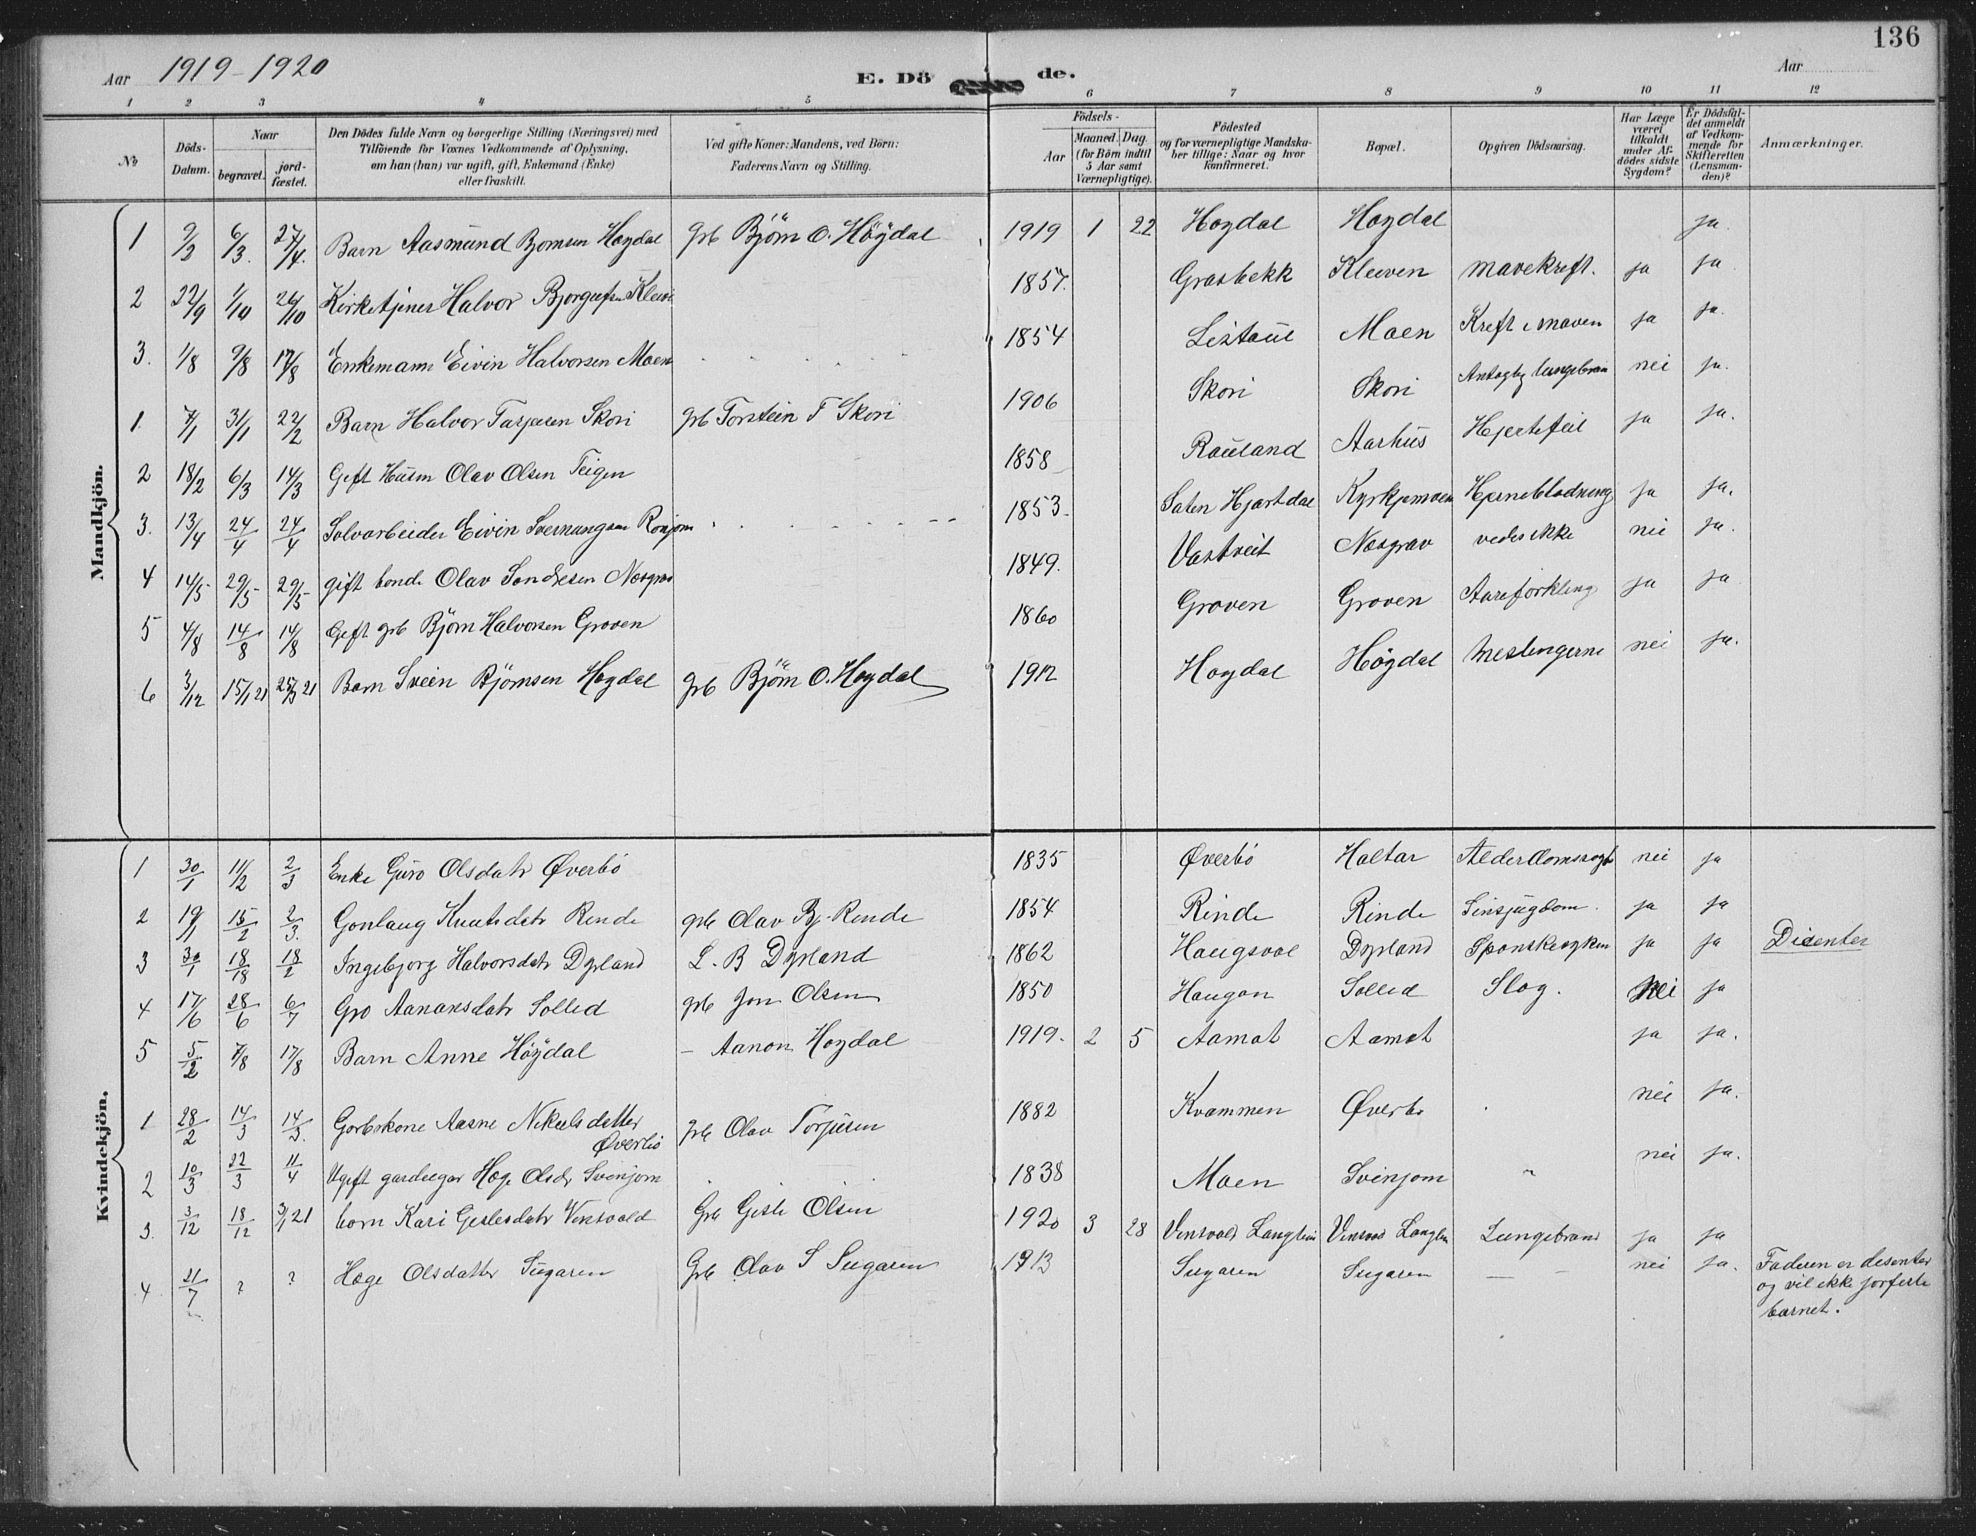 136
Aar 1919-1920 E. Dö de. Aar
1 2 3 4 5 6 7 8 9 10 11 12
No
Döds-Datum.
Naar
begravet.
jord-fæstet.
Den Dödes fulde Navn og borgerlige Stilling (Næringsvei) med
Tilföiende for Voxnes Vedkommende af Oplysning,
om han (hun) var ugift, gift, Enkemand (Enke)
eller fraskilt.
Ved gifte Koner: Mandens, ved Börn:
Faderens Navn og Stilling.
Födsels-
Aar
Maaned. Dag.
(for Börn indtil
5 Aar samt
Værnepligtige).
Födested
og for værnepligtige Mandska-
ber tillige: Naar og hvor
konfirmeret.
Bopæl.
Opgiven Dödsaarsag.
Har Læge
været
tilkaldt
under Af-
dödes sidste
Sygdom?
Er Dödsfal-
det anmeldt
af Vedkom-
mende for
Skifteretten
(Lensman-
den)?
Anmærkninger.
Mandkjön.
1 9/2 6/3. 27/4. Barn Aasmund Bjornsen Hogdal Grb Bjørn O. Höÿdal 1919 1 22 Hogdal Hogdal ja.
2 22/9 1/10 26/10 Kirketjener Halvor 1857. Grasbekk Kleiven mavekreft. ja ja
3. 1/8 9/8 17/8 Enkemann Eivin Halvorsen Moen 1854 Listaul Moen Kreft i maven ja ja.
1. 7/1 31/1 22/2 Barn Halvor Skori grb Torstein T Skori 1906 Skori Skori nei ja.
2 18/2 6/3 14/3 Gift Husm Olav Olsen Teigen 1858 Rauland Aarhus Hjertefeil ja ja.
3. 13/4 24/4 24/4 Solvarbeider Eivin 1853. Hjartdal Hjerneblødning ja ja.
4 14/5 29/5 29/5 gift bonde Olav Sondresen 1849. Vastveit Nesgrav vedes ikke nei ja.
5 4/8 14/8 14/8 Gift grb Bjørn Halvorsen Groven 1860 Groven Groven Aareforkling ja ja
6 3/12 15/1 21 21 Barn Svein Bjørnsen Hogdal grb Bjørn O. Hogdal 1912 Hogdal Høgdal Meslingerne nei ja.
Kvindekjön.
1 30/1 11/2 2/3 Enke Guro Olsdatr Øverbö 1835 Øverbö Haltar nei ja
2 19/1 15/2 2/3. Gonlaug Knutsdatr Rinde grb Olav Bj. Rinde 1854 Rinde Rinde Sinsjugdom. ja ja
3 30/1 18/18 18/2 Ingebjorg Halvorsdatr Dyrland L. B Dyrland 1862 Haugsvol Dyrland ja ja Disenter
4 17/6 28/6 6/7 Gro Aanonsdatr Sollid grb Jon Olsen 1850 Haugan Sollid Slag. Nei ja
5 5/2 7/8 17/8 Barn Anne Höÿdal - Aanon Hogdal 1919. 2 5 Aamot Aamot ja ja.
1 28/2 14/3 14/3. Gorbskone Aasne Nikulsdatter
Øverbö grb Olav Torjusen 1882 Kvammen Øverbö nei ja.
2 10/3 22/3 11/4 Ugift gardeegar Hæge Olsdr Svinjom 1838 Moen Svinjom " nei ja.
3. 3/12 18/12 21 born Kari Gislesdatr Grb Gisle Olsen 1920 3 28 Lungebrand ja ja
4 21/7 ? ? Hæge Olsdatter Sugaren Grb Olav S Sugaren 1913 Sugaren Sugaren — — nei ja. Faderen er disenter
og vil ikke jorfeste
barnet.